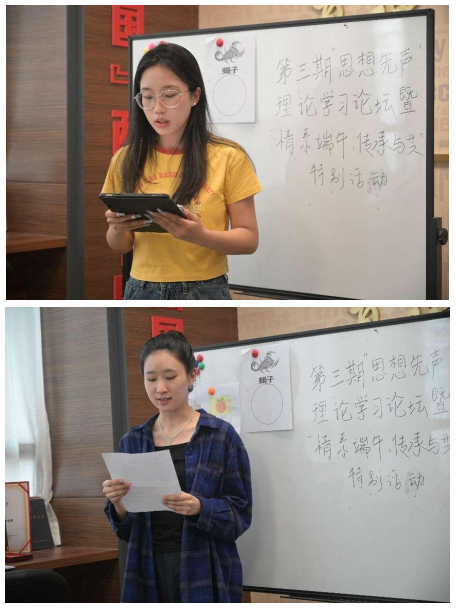 蝎子
第三期"思想先声"
理论学习论坛暨
"情系端午,传承与艾"
特别活动
蝎子
第三期"思想先声
理论学习论坛暨
"情系端午,传承与
特别活动